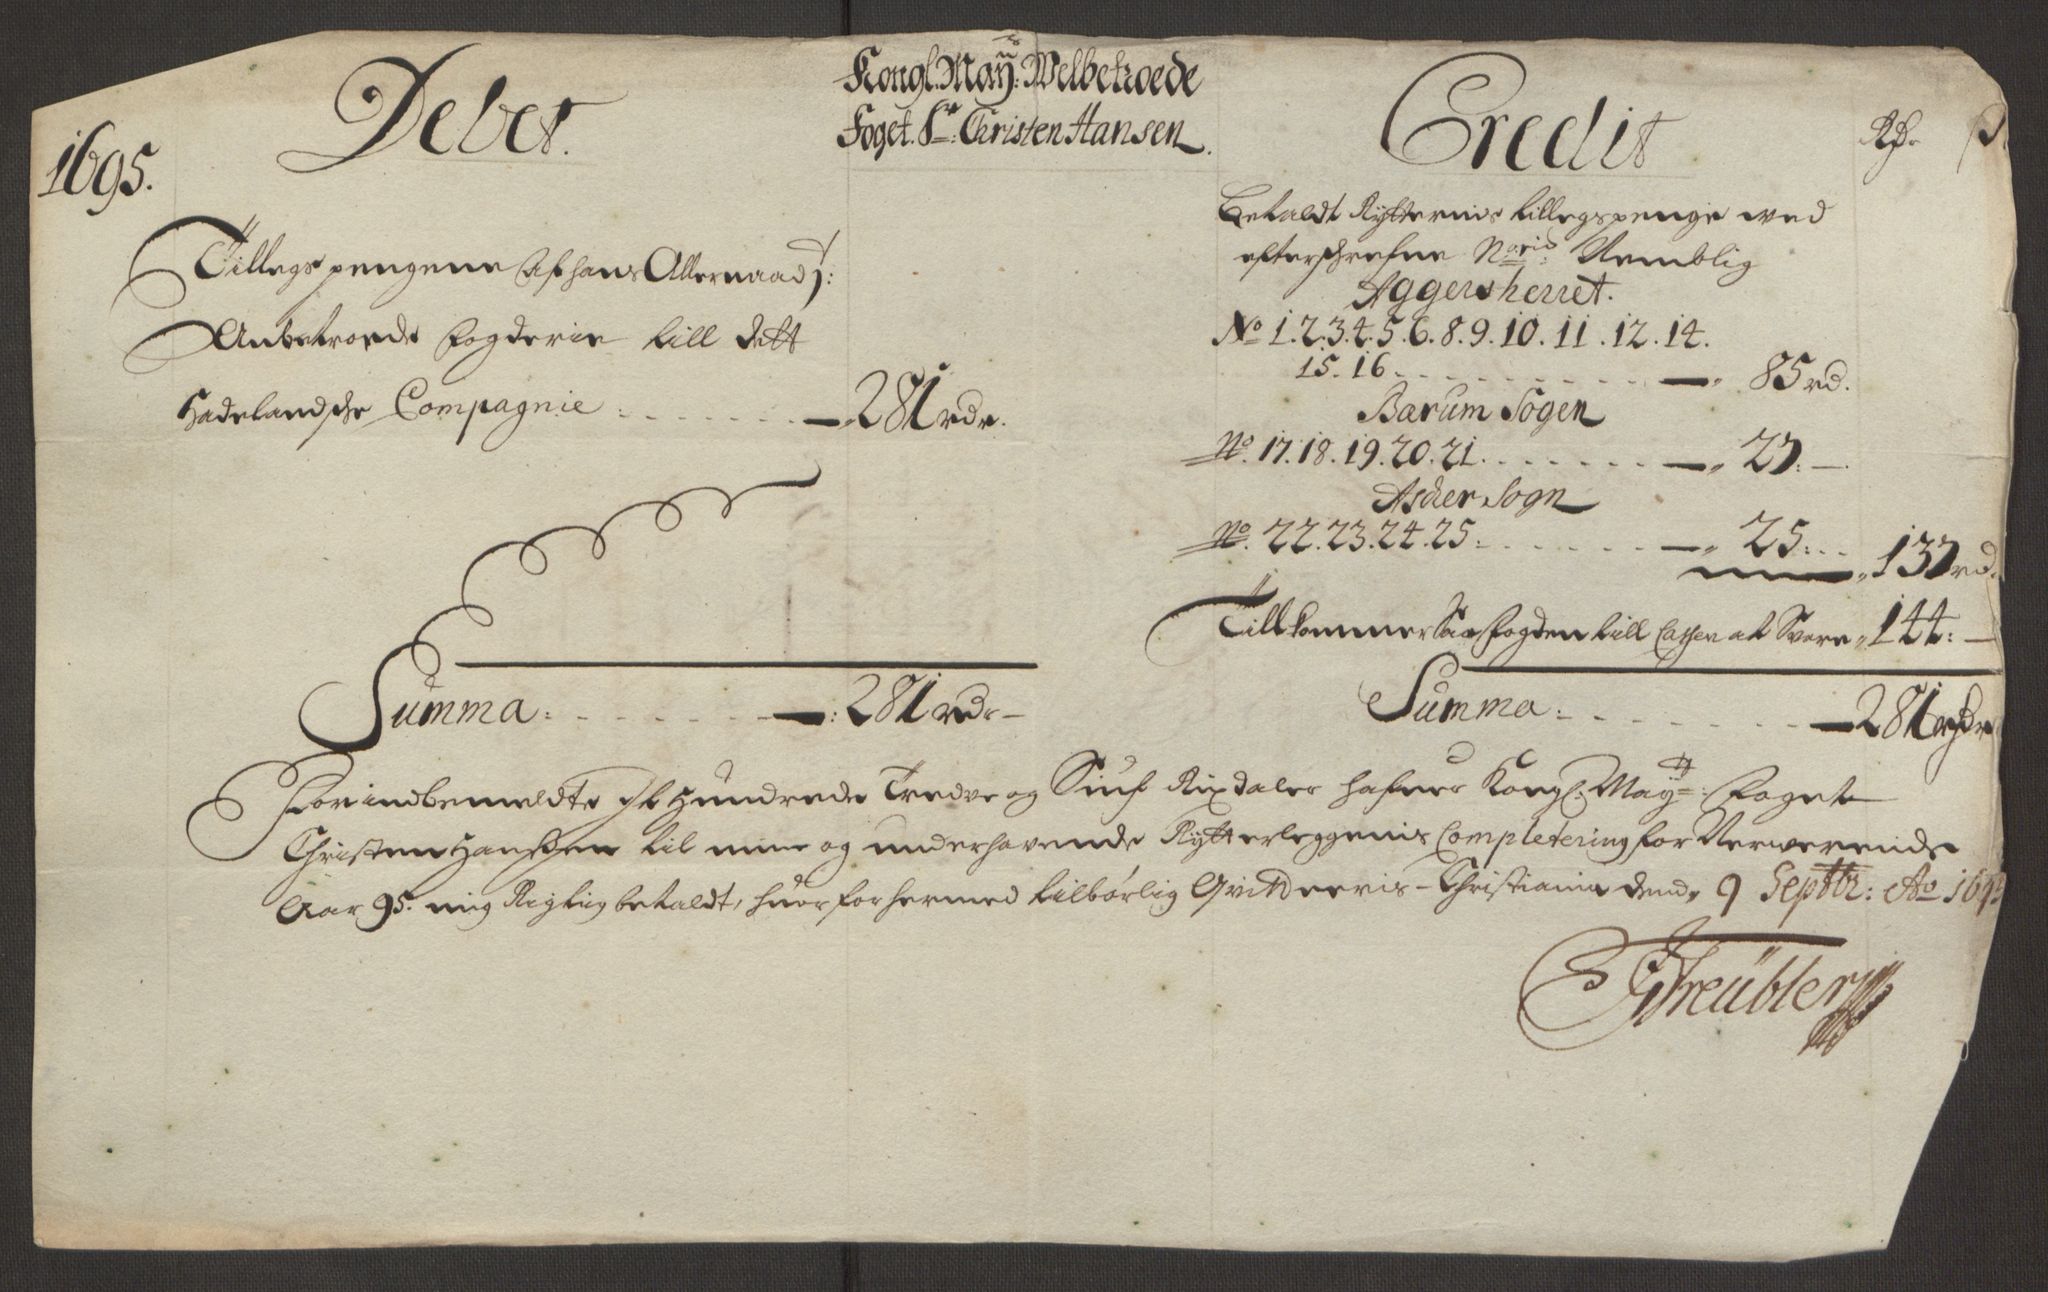 1695.
Debet.
Kongl. Maÿ:ts Welbetroede
Foget. Sr: Christen Hansen.
Credit
Rdr. ß.
Tillegs pengene Af hans Allernaadt:
Anbetroede Fogderie till dett
Hadelandsche Compagnie : - - - - - 281 rdr.
Summa : - - - - - : 281 rdr -
Betaldt Rytternis tillegspenge wed
efterschrefne No:rid: Nemblig
Aggersherret.
No 1. 2. 3. 4. 5. 6. 8. 9. 10. 11. 12. 14.
15. 16 - - - - - - 85 rd.
Bærum Sogen
No. 17. 18. 19. 20. 21. - - - - - 27: -
Ascher Sogn
No. 22. 23. 24. 25 : - - - - - 25: - - 137 rd.
Till kommer Saa Fogden till Cassen at Svere 144: -
Summa : - - - - - 281 rdr
Forindbemeldte Et Hundrede Tredve og Siuf Rixdaler hafuer Kongl. May:tz: Foget
Christen Hanßen til min og underhavende Rytterleggenis Completering for Nerwerende
Aar 95. mig Rigtig betaldt, huorfor hermed tilbørlig Qvitteeris - Christiania dend 9 Septbr: Ao 1695
GStreübler